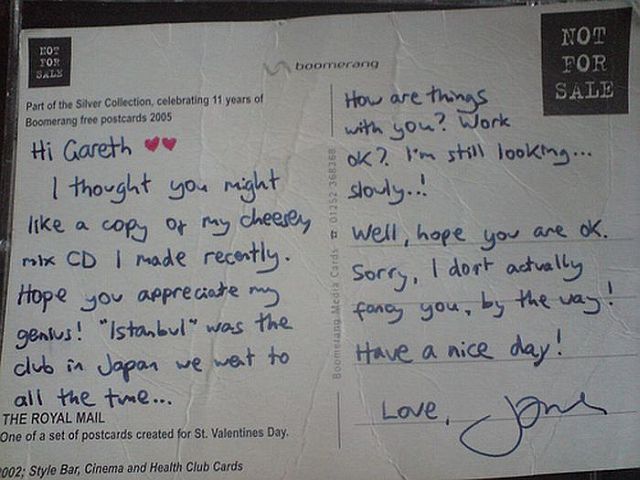 NOT
FOR
SALE
boomerang
NOT
FOR
SALE
Part of the Silver Collection, celebrating 11 years of
Boomerang free postcards 2005
Hi Gareth
I thought you might
like a copy of my cheesey
mix CD I made recently.
Hope you appreciate my
genius! "Istanbul" was the
club in Japan we went to
all the time...
THE ROYAL MAIL
One of a set of postcards created for St. Valentines Day.
2002; Style Bar, Cinema and Health Club Cards
Boomerang Media Cards ☎ 01252 368368
How are things
with you? Work
ok? I'm still looking...
slowly..!
Well, hope you are ok.
Sorry, I don't actually
fancy you, by the way!
Have a nice day!
Love,